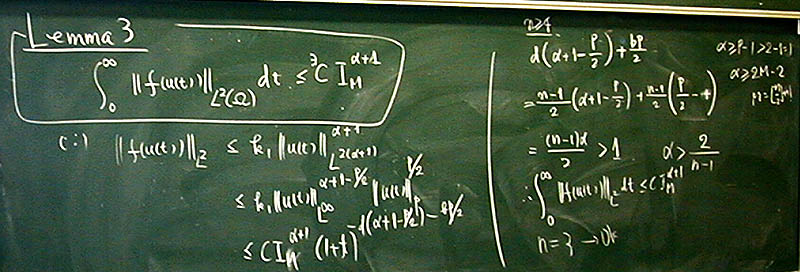 Lemma 3
∫_0^∞ ‖f(u(t))‖_{L²(Ω)} dt ≤ ³C I_M^{α+1}
(∵) ‖f(u(t))‖_{L²} ≤ k₁ ‖u(t)‖_{L^{2(α+1)}}^{α+1}
≤ k₁ ‖u(t)‖_{L^∞}^{α+1-P/2} ‖u(t)‖^{P/2}
≤ C I_M^{α+1} (1+t)^{-d(α+1-P/2)-
n≥4
d(α+1-P/2)+bP/2
= n-1/2 (α+1-P/2) + n-1/2 (P/2 -
= (n-1)α/2 > 1 α > 2/n-1
∴ ∫_0^∞ ‖f(u(t))‖_{L²} dt ≤ C I_M^{α+1}
n = 3 → OK
α ≥ P-1 > 2-1 = 1
α ≥ 2M-2
M = [